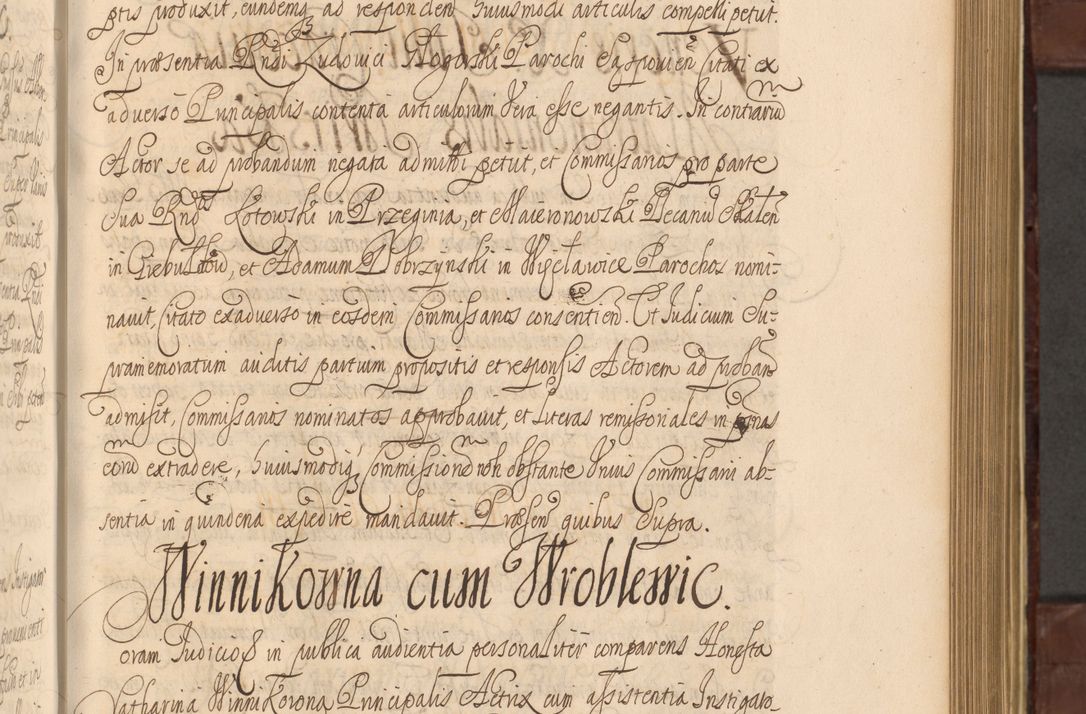 ptis produxit, eundemq ad respondend huiusmodi articulis compelli petiit.
In præsentia Rndi Ludovici Rogaski Parochi Gasprovieñ Citati ex
adverso Principalis contenta articulorum Vera esse negantis. In contrariū
Actor se ad probandum negata admitti petiit, et Commissarios pro parte
Sua Rndos Kotowski in Przeginia, et Maieronowski Decanū Skaleñ
in Giebułtow, et Adamum Dobrzynski in Wysławice Parochos nomi-
navit, Citato ex adverso in eosdem Commissarios consentieñ. Et Iudicium Su-
pramemoratum auditis partium propositis et responsis Actorem ad proban
admisit, Commissarios nominatos approbavit, et literas remissoriales in
eorū extradere, huiusmodiq Commissionē non obstante Unius Commissarii ab-
sentia in quindena expedire mandavit. Præsen quibus Supra.
Winnikowna cum Wroblewic.
Coram Iudicioq in publica audientia personaliter comparens Honesta
Catharina Winnikowna Principalis Actrix cum assistentia Instigato-